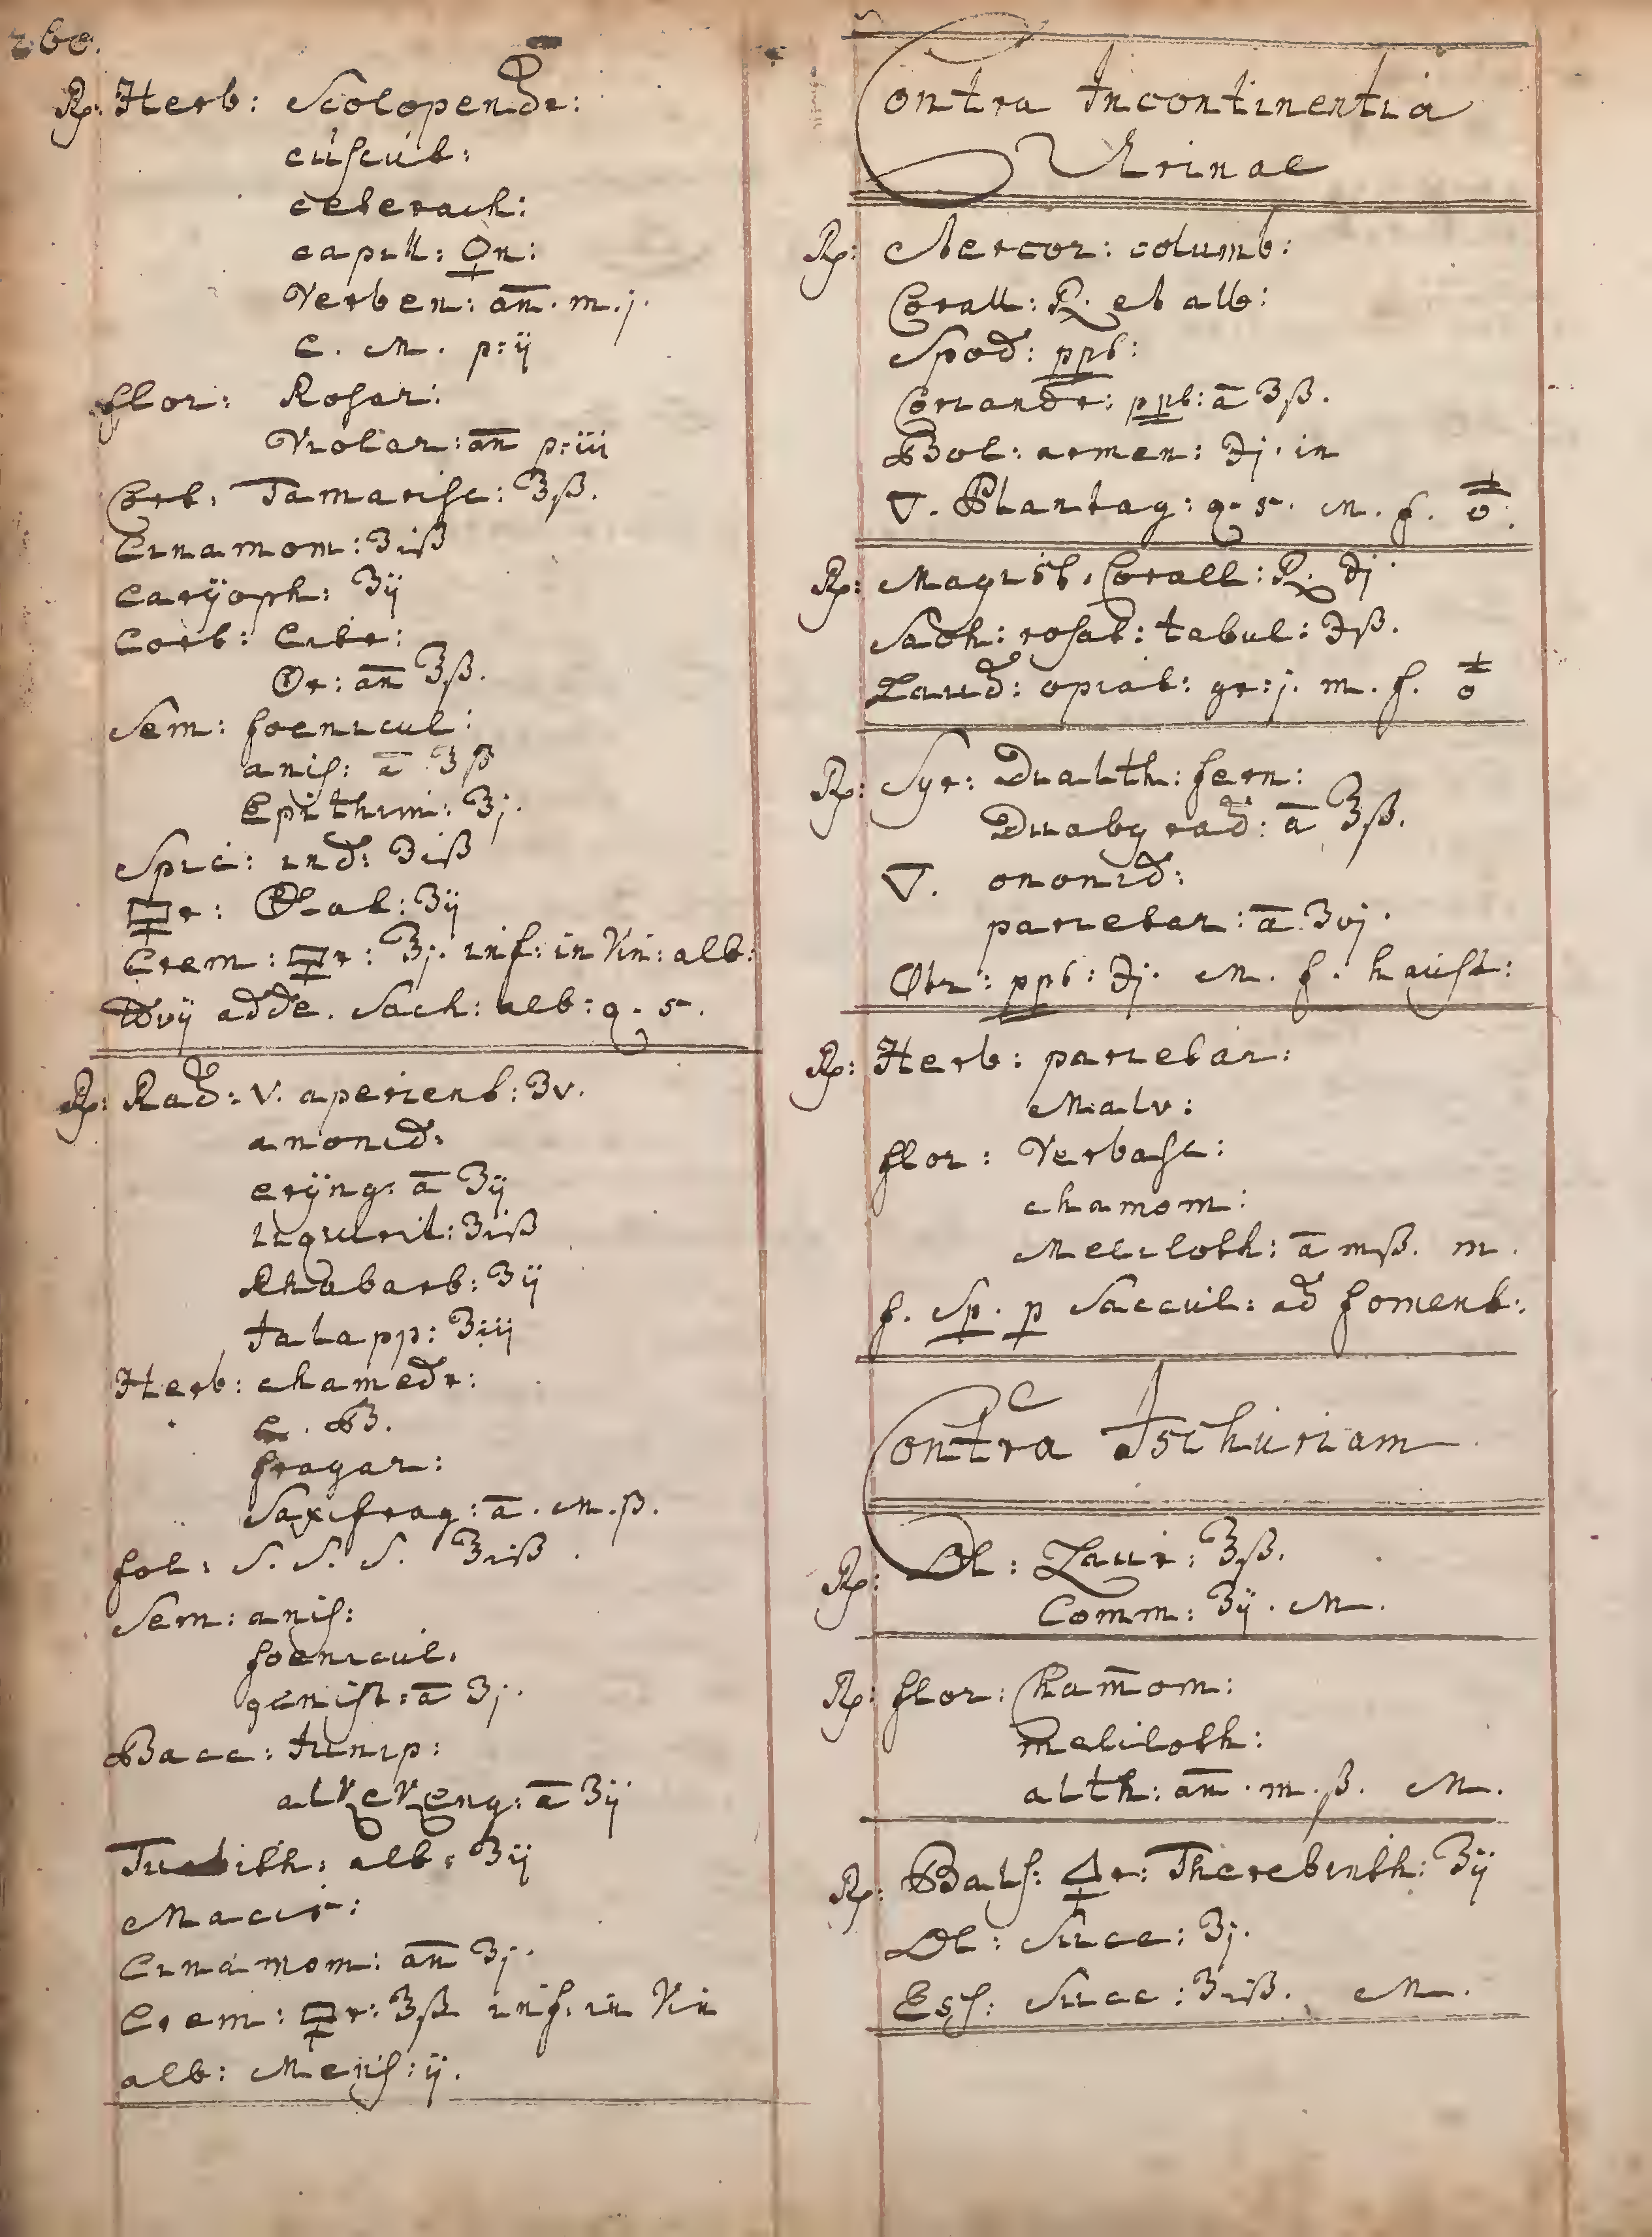 260.
Rp: Herb: Scolopendr:
cuscut:
ceterach:
capill: ♀n:
Verben: an. m. j.
C. M. p: ij
flor: Rosar:
Violar: an p: iii
Cort: Tamarisc: ʒß.
Cinamom: ʒiß
carÿoph: ʒij
Cort: Citr:
Or: an ʒß.
Sem: foenicul:
anis: a ʒß
Epithim: ʒj.
Spic: ind: ʒiß
ʒij
Crem: ʒj. inf: in Vin: alb:
adde. Sach: alb: q. s.
Rp: Rad: V. aperient: ʒv.
anonid:
erÿng: a ʒij
liquirit: ʒiß
Rhabarb: ʒij
Jalapp: ʒiij
Herb: chamedr:
C. B.
fragar:
Saxifrag: a. M. ß.
fol: S. S. S. ʒiß.
Sem: anis:
foenicul.
genist: a ʒj.
Bacc: Junip:
alkekeng: a ʒij
Turbith: alb: ʒij
Macis:
Cinamom: an ʒj.
Crem: ʒß inf. in Vin
alb: Mens: ij.
Contra Incontinentia
Urinae
Rp: Stercor: columb:
Corall: R. et alb:
Spod: ppt:
Coriandr: ppt: a ʒß.
Bol: armen: ℈j. in
▽. Plantag: q. s. M. f.
Rp: Magist. Corall: R. ℈j.
Sach: rosat: tabul: ℈ß.
Laud: opiat: gr: j. m. f.
Rp: Syr: Dialth: fern:
rad: a ʒß.
▽. ononid:
parietar: a ʒvj.
ppt: ℈j. M. f. haust:
Rp: Herb: parietar:
Malv:
flor: Verbasc:
chamom:
Meliloth: a mß. m.
f. Sp. p Saccul: ad foment:
Contra Ischuriam
Rp: Ol: Laur: ʒß.
Comm: ʒij. M.
Rp: flor: Chamom:
meliloth:
alth: an. m. ß. M.
Rp: Bals: 🜍r: Therebinth: ʒij
Ol: Succ: ʒj.
Ess: Succ: ʒiß. M.